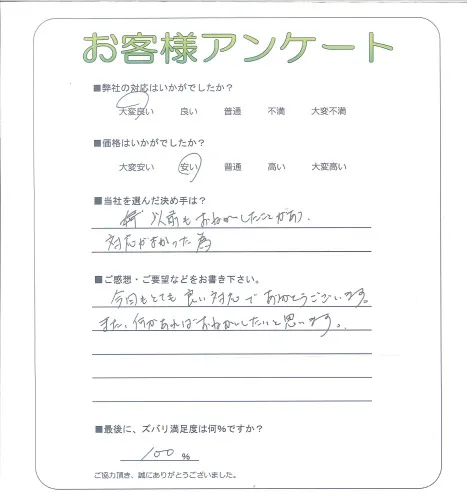 お客様アンケート
■弊社の対応はいかがでしたか？
大変良い 良い 普通 不満 大変不満
■価格はいかがでしたか？
大変安い 安い 普通 高い 大変高い
■当社を選んだ決め手は？
以前もおねがいしたことがあり、
対応がよかった為
■ご感想・ご要望などをお書き下さい。
今回もとても良い対応でありがとうございます。
また、何かあればおねがいしたいと思います。
■最後に、ズバリ満足度は何%ですか？
100 %
ご協力頂き、誠にありがとうございました。